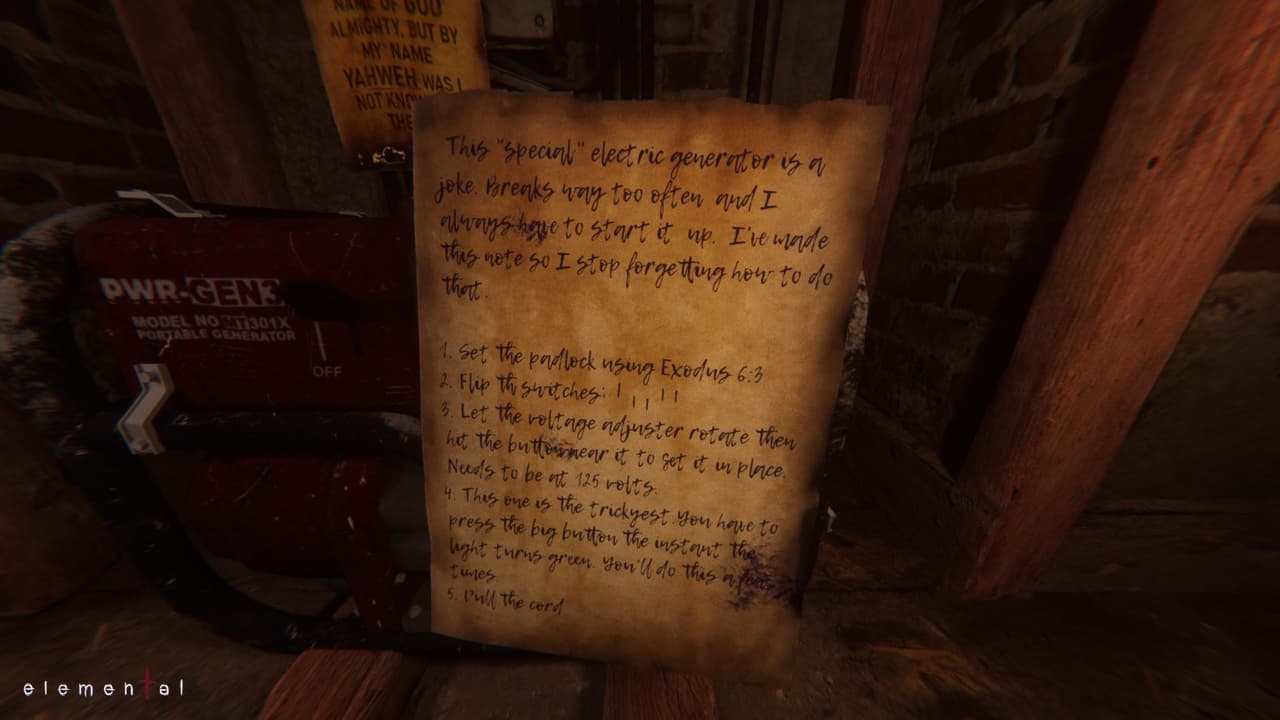 NAME OF GOD
ALMIGHTY, BUT BY
MY NAME
YAHWEH WAS I
NOT KNOW
THE
This "special" electric generator is a
joke. Breaks way too often and I
always have to start it up. I've made
this note so I stop forgetting how to do
that.
1. Set the padlock using Exodus 6:3
2. Flip th switches: | | | | |
3. Let the voltage adjuster rotate then
hit the button near it to set it in place.
Needs to be at 125 volts.
4. This one is the trickyest. You have to
press the big button the instant the
light turns green. You'll do this a few
times.
5. Pull the cord
PWR-GEN3
MODEL NO MT301X
PORTABLE GENERATOR
OFF
elemental